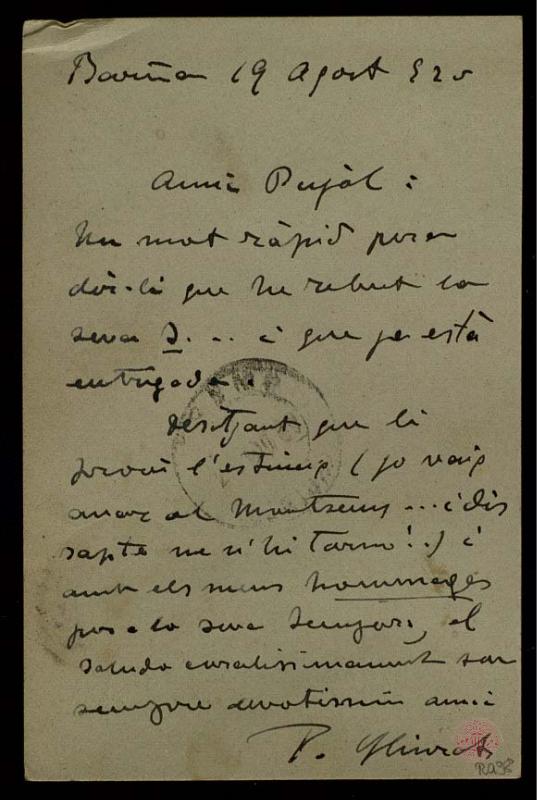 19 Agost 920
Amic Pujol:
Un mot ràpid per a
dir-li que he rebut la
seva D. . . . i que ja està
entregada.
Desitjant que li
provi l'estiueig (jo vaig
anar al Montseny ... i dis
sapte me n'hi torno!..) i
amb els meus hommages
per a la seva senyora, el
saluda coralissimament son
sempre devotissim amic
P.
RA98